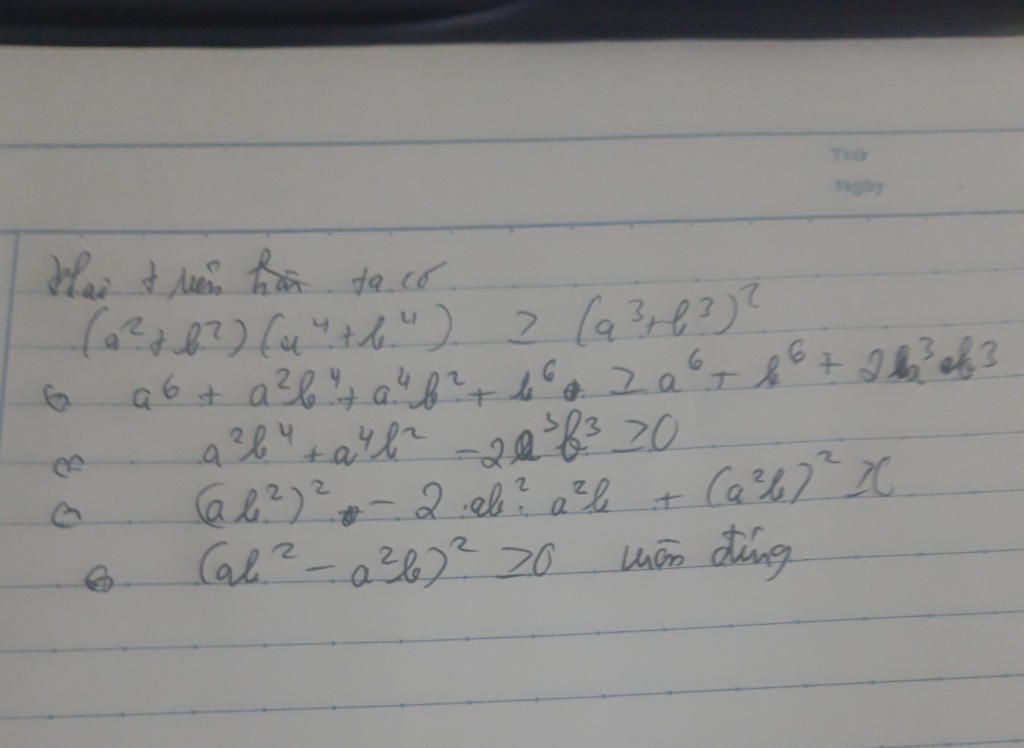 Thứ
Ngày
ta có
(a²+b²)(a⁴+b⁴) ≥ (a³+b³)²
⇔ a⁶ + a²b⁴ + a⁴b² + b⁶ ≥ a⁶ + b⁶ + 2a³b³
⇔ a²b⁴ + a⁴b² - 2a³b³ ≥ 0
⇔ (ab²)² - 2.ab².a²b + (a²b)² ≥ 0
⇔ (ab² - a²b)² ≥ 0 luôn đúng